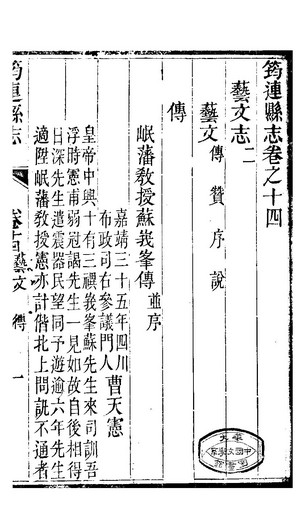 筠連縣志卷之十四
藝文志二
藝文 傳 贊 序 說
傳
岷藩教授蘇峩峯傳 並序
嘉靖三十五年四川
布政司右參議門人曹天憲
皇帝中興十有三禩峩峯蘇先生來司訓吾
浮時憲甫弱冠謁先生一見如故自後相得
日深先生遣震器民望同予遊逾六年先生
適陞岷藩教授憲亦計偕北上問訊不通者
筠連縣志
卷十四藝文 傳 一